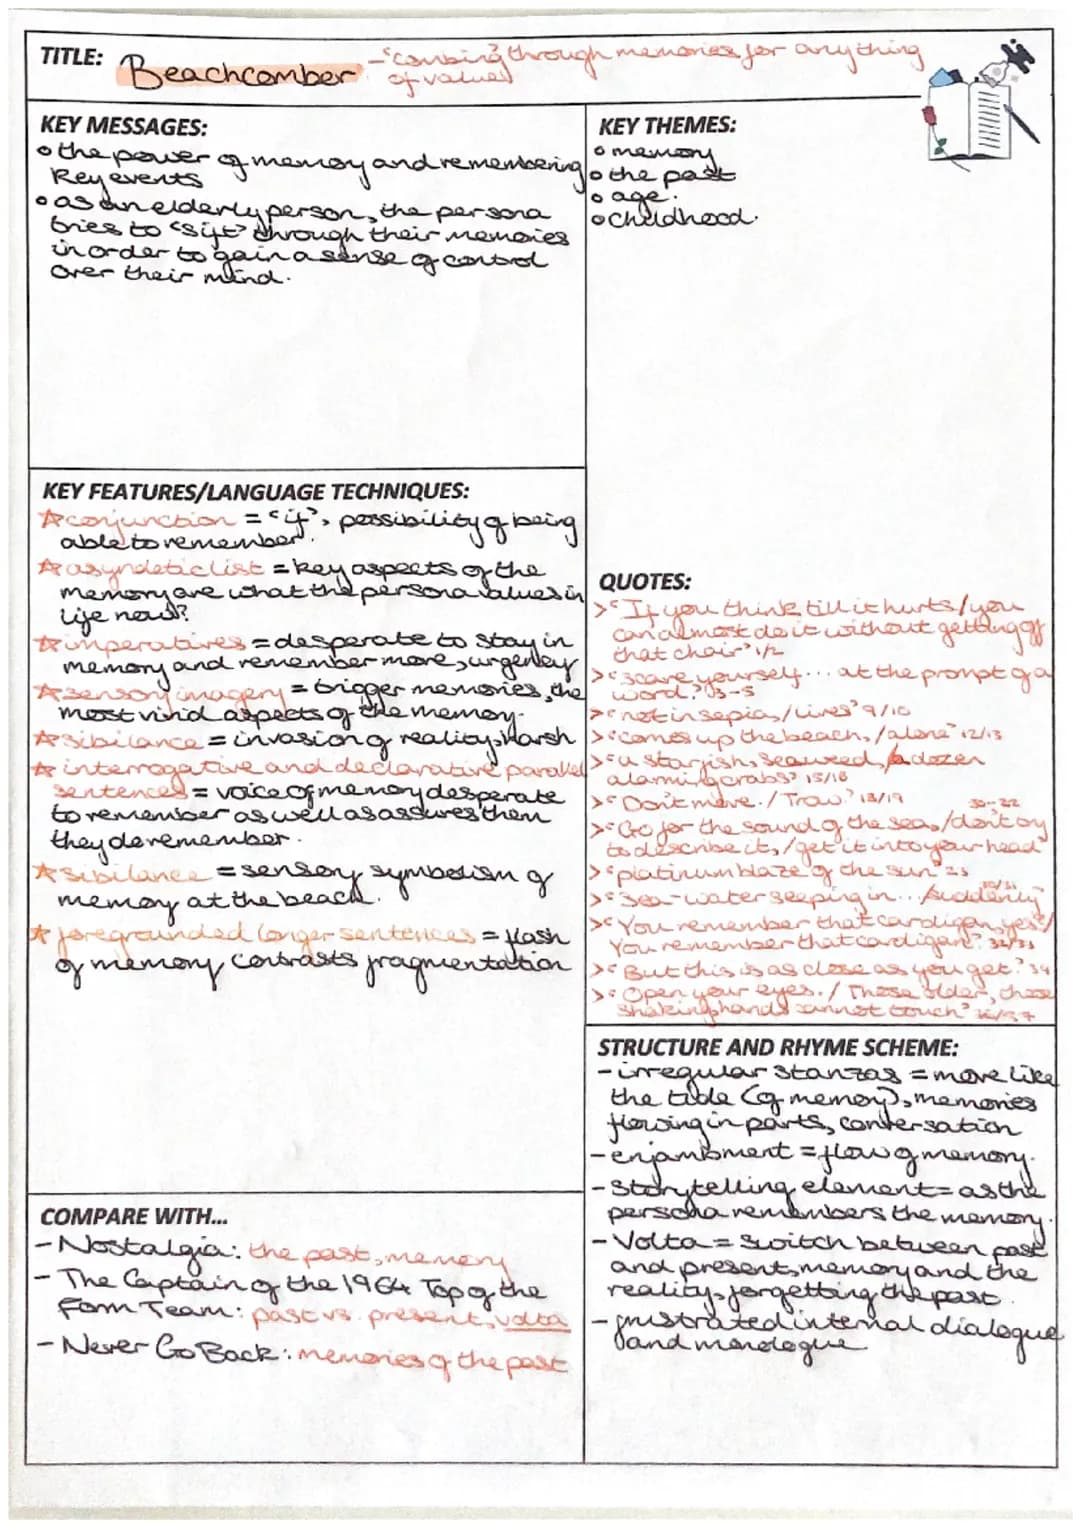 TITLE: Beachcomber - 'combing' through memories for anything
of value
KEY MESSAGES:
• the power of memory and remembering
key events
• as an elderly person, the persona
tries to 'sift' through their memories
in order to gain a sense of control
over their mind.
KEY THEMES:
• memory
• the past
• age.
• childhood.
KEY FEATURES/LANGUAGE TECHNIQUES:
☆ conjunction = 'if', possibility of being
able to remember.
☆ asyndetic list = key aspects of the
memory are what the persona values in
life now?
☆ imperatives = desperate to stay in
memory and remember more, urgency
☆ sensory imagery = trigger memories, the
most vivid aspects of the memory.
☆ sibilance = invasion of reality, harsh
☆ interrogative and declarative parallel
sentences = voice of memory desperate
to remember as well as assures them
they do remember.
☆ sibilance = sensory symbolism of
memory at the beach.
☆ foregrounded longer sentences = flash
of memory, contrasts fragmentation
QUOTES:
> 'If you think till it hurts/you
can almost do it without getting off
that chair' 1/2
> 'scare yourself... at the prompt of a
word.' 3-5
> 'not in sepia,/lives' 9/10
> 'comes up the beach,/alone' 12/13
> 'a starfish, seaweed, a dozen
alarming crabs' 15/16
> 'Don't move./Trow.' 18/19
> 'Go for the sound of the sea,/don't try
to describe it,/get it into your head' 20-22
> 'platinum blaze of the sun' 25
> 'Sea-water seeping in.../suddenly' 30/31
> 'You remember that cardigan, yes?/
You remember that cardigan.' 32/33
> 'But this is as close as you get.' 34
> 'Open your eyes./Those older, those
shaking hands cannot touch' 36/37
STRUCTURE AND RHYME SCHEME:
- irregular stanzas = more like
the tide (of memory), memories
flowing in parts, conversation
- enjambment = flow of memory.
- Storytelling element = as the
persona remembers the memory.
- Volta = switch between past
and present, memory and the
reality, forgetting the past.
- frustrated internal dialogue
and monologue
COMPARE WITH...
- Nostalgia: the past, memory
- The Captain of the 1964 Top of the
Form Team: past vs. present, volta
- Never Go Back: memories of the past